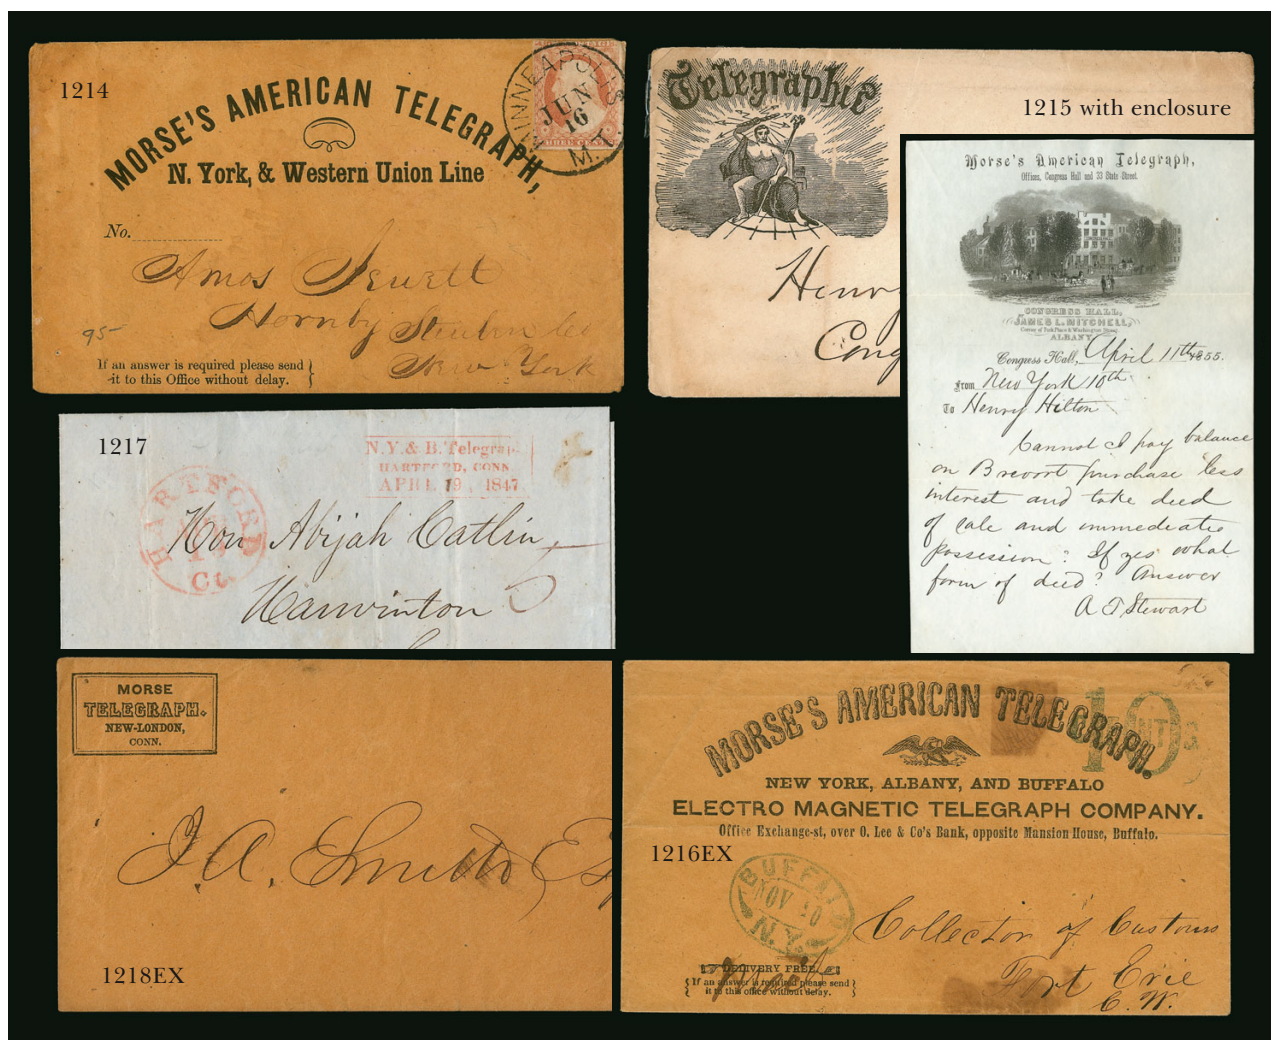 1214
MORSE'S AMERICAN TELEGRAPH,
N. York, & Western Union Line
MINNEAPOLIS
JUN
16
M.T.
THREE CENTS
No.
Amos Jewett
Hornby Steuben Co
New York
95
If an answer is required please send
it to this Office without delay.
Telegraphic
1215 with enclosure
Henry
Cong
Morse's American Telegraph,
Offices, Congress Hall and 33 State Street.
CONGRESS HALL,
JAMES L. MITCHELL,
Corner of Park Place & Washington Street
ALBANY
Congress Hall, April 11th 1855.
From New York 10th
To Henry Hilton
Cannot I pay balance
on Brevort purchase less
interest and take deed
of sale and immediate
possession? If yes what
form of deed? Answer
A T Stewart
1217
N.Y. & B. Telegraph
HARTFORD, CONN.
APRIL 19, 1847
HARTFORD
Ct.
Hon Abijah Catlin
Harwinton
5
MORSE
TELEGRAPH.
NEW-LONDON,
CONN.
J. A. Smith Es
1218EX
MORSE'S AMERICAN TELEGRAPH.
10
NEW YORK, ALBANY, AND BUFFALO
ELECTRO MAGNETIC TELEGRAPH COMPANY.
Office Exchange-st, over O. Lee & Co's Bank, opposite Mansion House, Buffalo.
1216EX
BUFFALO
NOV 10
N.Y.
Collector of Customs
Fort Erie
C. W.
DELIVERY FREE.
If an answer is required please send
it to this office without delay.